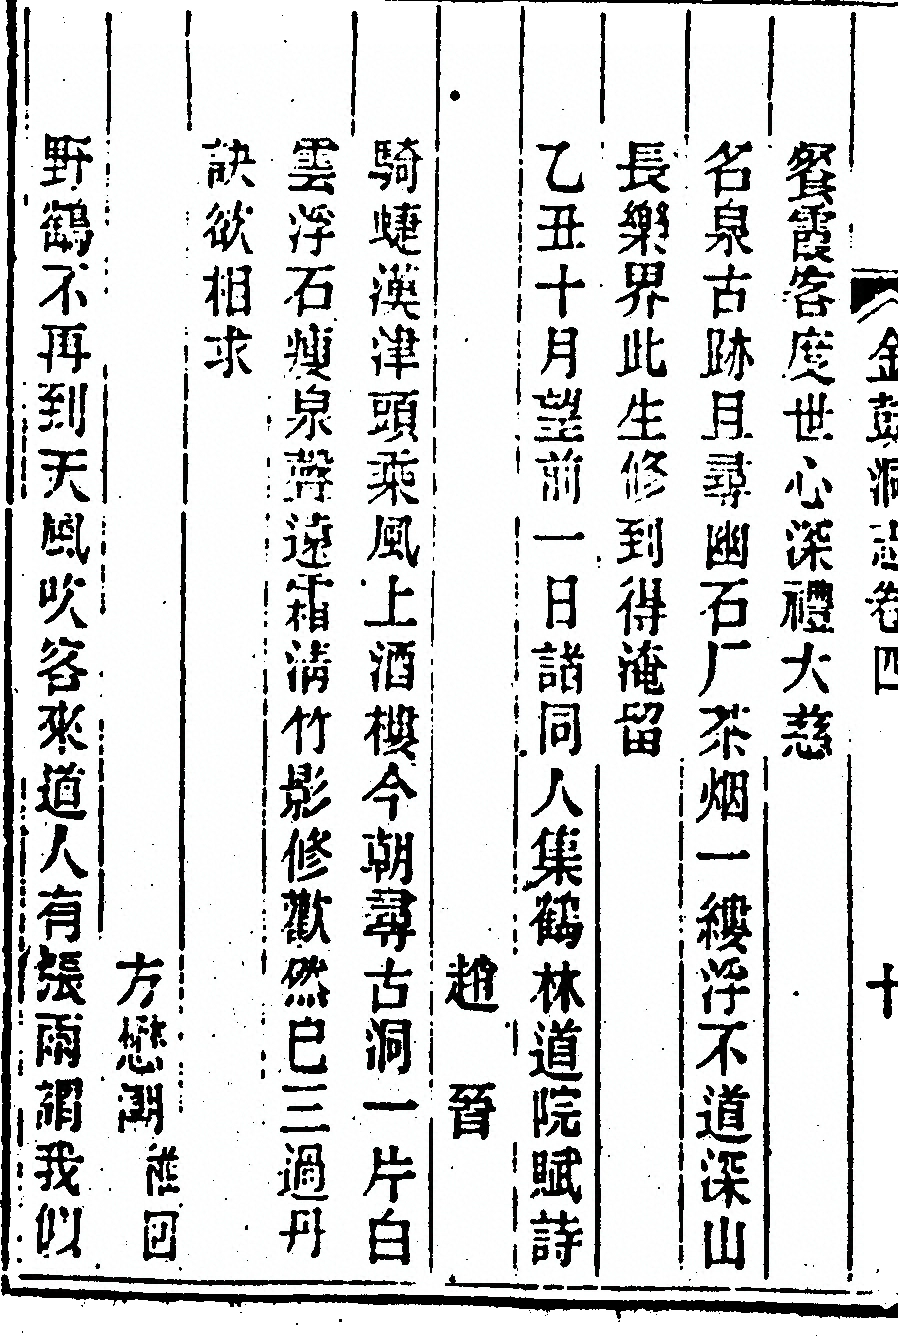 金鼓洞志卷四 十
餐霞客度世心深禮大慈
名泉古跡且尋幽石厂茶烟一縷浮不道深山
長樂界此生修到得淹留
乙丑十月望前一日諸同人集鶴林道院賦詩
趙 晉
騎蜨漢津頭乘風上酒樓今朝尋古洞一片白
雲浮石瘦泉聲遠霜清竹影修歡然已三過丹
訣欲相求
方懋
野鶴不再到天風吹客來道人有張雨謂我似